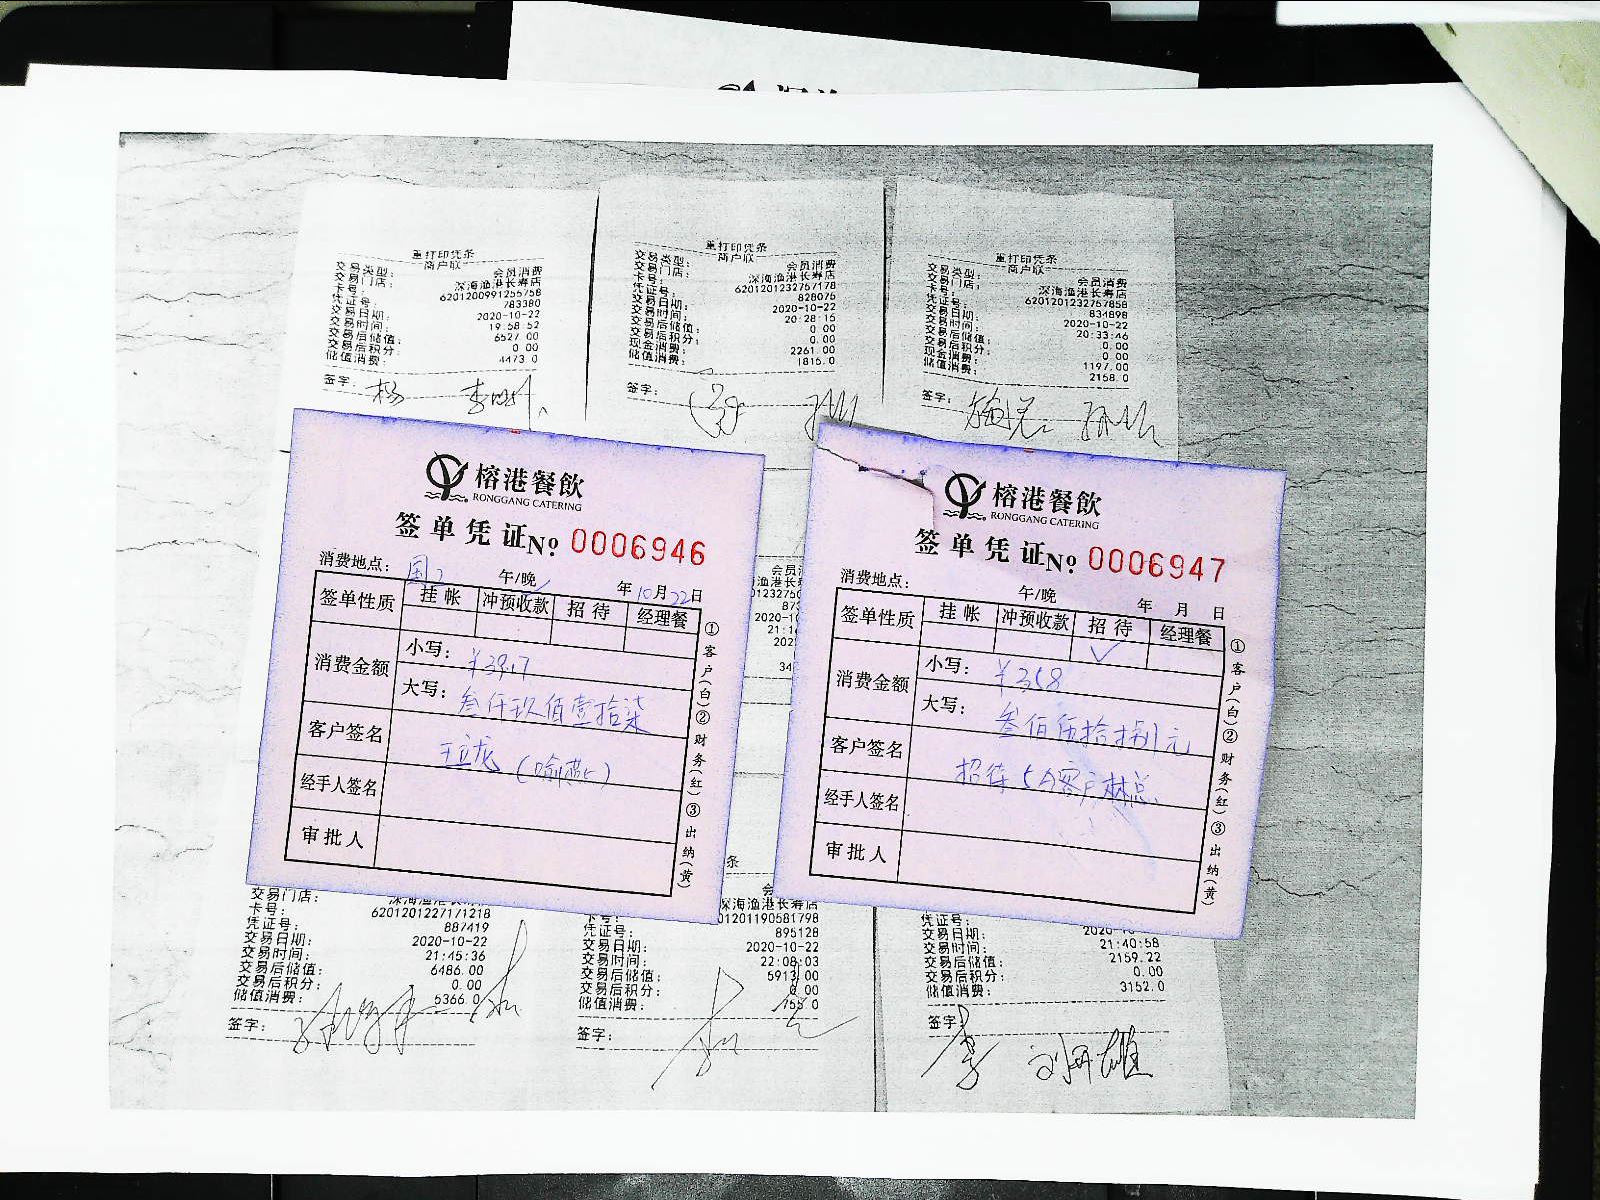 重打印凭条
商户联
交易类型： 会员消费
交易门店： 深海渔港长寿店
卡号： 6201200991255758
凭证号： 783380
交易日期： 2020-10-22
交易时间： 19:58:52
交易后储值： 6527.00
交易后积分： 0.00
储值消费： 4473.0
签字：
重打印凭条
商户联
交易类型： 会员消费
交易门店： 深海渔港长寿店
卡号： 6201201232757178
凭证号： 828076
交易日期： 2020-10-22
交易时间： 20:28:16
交易后储值： 0.00
交易后积分： 0.00
现金消费： 2261.00
储值消费： 1816.0
签字：
重打印凭条
商户联
交易类型： 会员消费
交易门店： 深海渔港长寿店
卡号： 6201201232767858
凭证号： 834898
交易日期： 2020-10-22
交易时间： 20:33:46
交易后储值： 0.00
交易后积分： 0.00
现金消费： 1197.00
储值消费： 2158.0
签字：
榕港餐飲
RONGGANG CATERING
签单凭证№ 0006946
消费地点： 午/晚 年10月22日
签单性质 挂帐 冲预收款 招待 经理餐
消费金额 小写：¥3917
大写：叁仟玖佰壹拾柒
客户签名
经手人签名
审批人
①客户(白)②财务(红)③出纳(黄)
榕港餐飲
RONGGANG CATERING
签单凭证№ 0006947
消费地点： 午/晚 年 月 日
签单性质 挂帐 冲预收款 招待 经理餐
✓
消费金额 小写：¥358
大写：叁佰伍拾捌元
客户签名
经手人签名
审批人
①客户(白)②财务(红)③出纳(黄)
交易门店： 深海渔港长寿店
卡号： 6201201227171218
凭证号： 887419
交易日期： 2020-10-22
交易时间： 21:45:36
交易后储值： 6486.00
交易后积分： 0.00
储值消费： 5366.0
签字：
深海渔港长寿店
卡号： 01201190581798
凭证号： 895128
交易日期： 2020-10-22
交易时间： 22:08:03
交易后储值： 5913.00
交易后积分： 0.00
储值消费： 755.0
签字：
凭证号：
交易日期： 2020-10-22
交易时间： 21:40:58
交易后储值： 2159.22
交易后积分： 0.00
储值消费： 3152.0
签字：